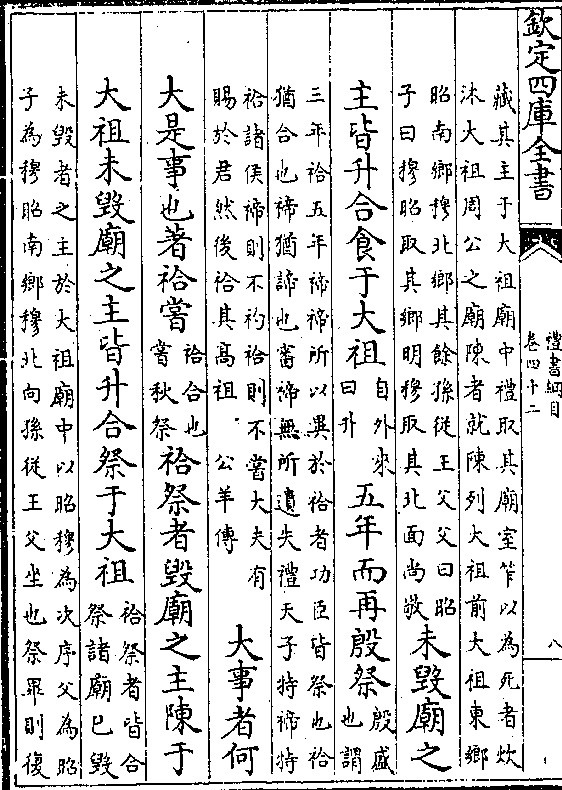 欽定四庫全書
禮書綱目
卷四十二
八
藏其主于大祖廟中禮取其廟室笮以為死者炊
沐大祖周公之廟陳者就陳列大祖前大祖東鄉
昭南鄉穆北鄉其餘孫從王父父曰昭
子曰穆昭取其鄉明穆取其北面尚敬
未毀廟之
主皆升合食于大祖
自外來
曰升
五年而再殷祭
殷盛
也謂
三年祫五年禘禘所以異於祫者功臣皆祭也祫
猶合也禘猶諦也審禘無所遺失禮天子特禘特
祫諸侯禘則不礿祫則不嘗大夫有
賜於君然後祫其高祖 公羊傳
大事者何
大是事也著祫嘗
祫合也
嘗秋祭
祫祭者毀廟之主陳于
大祖未毀廟之主皆升合祭于大祖
祫祭者皆合
祭諸廟已毀
未毀者之主於大祖廟中以昭穆為次序父為昭
子為穆昭南鄉穆北向孫從王父坐也祭畢則復